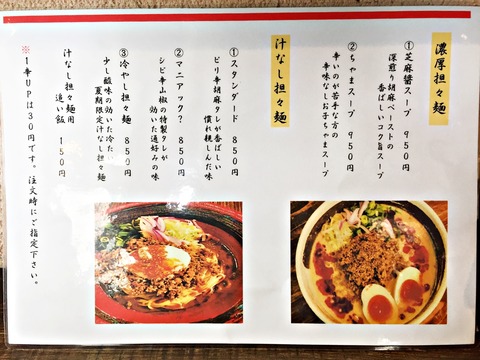 濃厚担々麺
①芝麻醤スープ 950円
深煎り胡麻ペーストの
香ばしいコク旨スープ
②ちゃまスープ 950円
辛いのが苦手な方の
辛味なしお子ちゃまスープ
汁なし担々麺
①スタンダード 850円
ピリ辛胡麻タレが香ばしい
慣れ親しんだ味
②マニアック? 850円
シビ辛山椒の特製タレが
効いた通好みの味
③冷やし担々麺 850円
少し酸味の効いた冷たい
夏期限定汁なし担々麺
汁なし担々麺用
追い飯 150円
※1辛UPは30円です。注文時にご指定下さい。